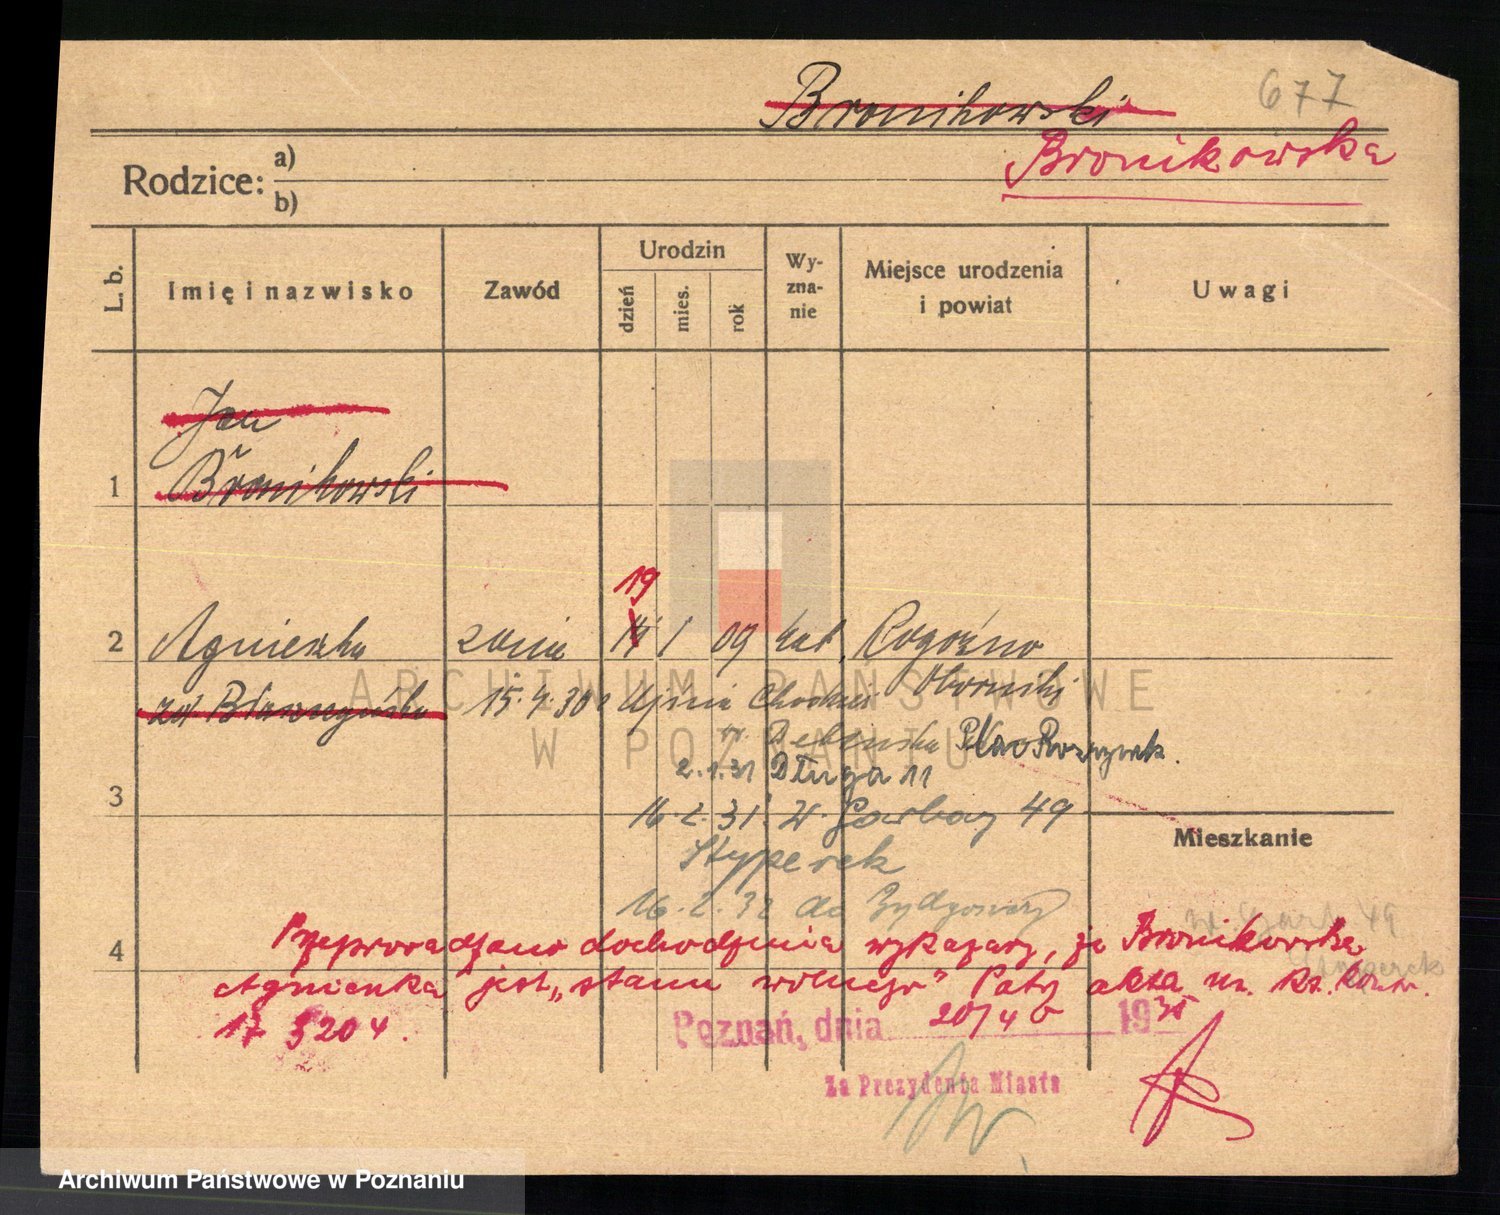 Bronikowski 677
Bronikowska
Rodzice: a)
b)
L. b.
Imię i nazwisko
Zawód
Urodzin
dzień
mies.
rok
Wy-
zna-
nie
Miejsce urodzenia
i powiat
Uwagi
Jan
1 Bronikowski
19
2 Agnieszka żona 14 1 09 kat. Rogoźno
Oborniki
zd. 15.4.30
Plac
2.1.31 Długa 11
3 16.2.31. W. Garbary 49
Styperek
Mieszkanie
16.2.32 do Bydgoszczy
W. Garb. 49
Styperek
4 Przeprowadzono dochodzenia wykazały, że Bronikowska
Agnieszka jest „stanu wolnego" Patrz akta
17 5204.
Poznań, dnia 20/4 1935
Za Prezydenta Miasta
ARCHIWUM PAŃSTWOWE
W POZNANIU
Archiwum Państwowe w Poznaniu